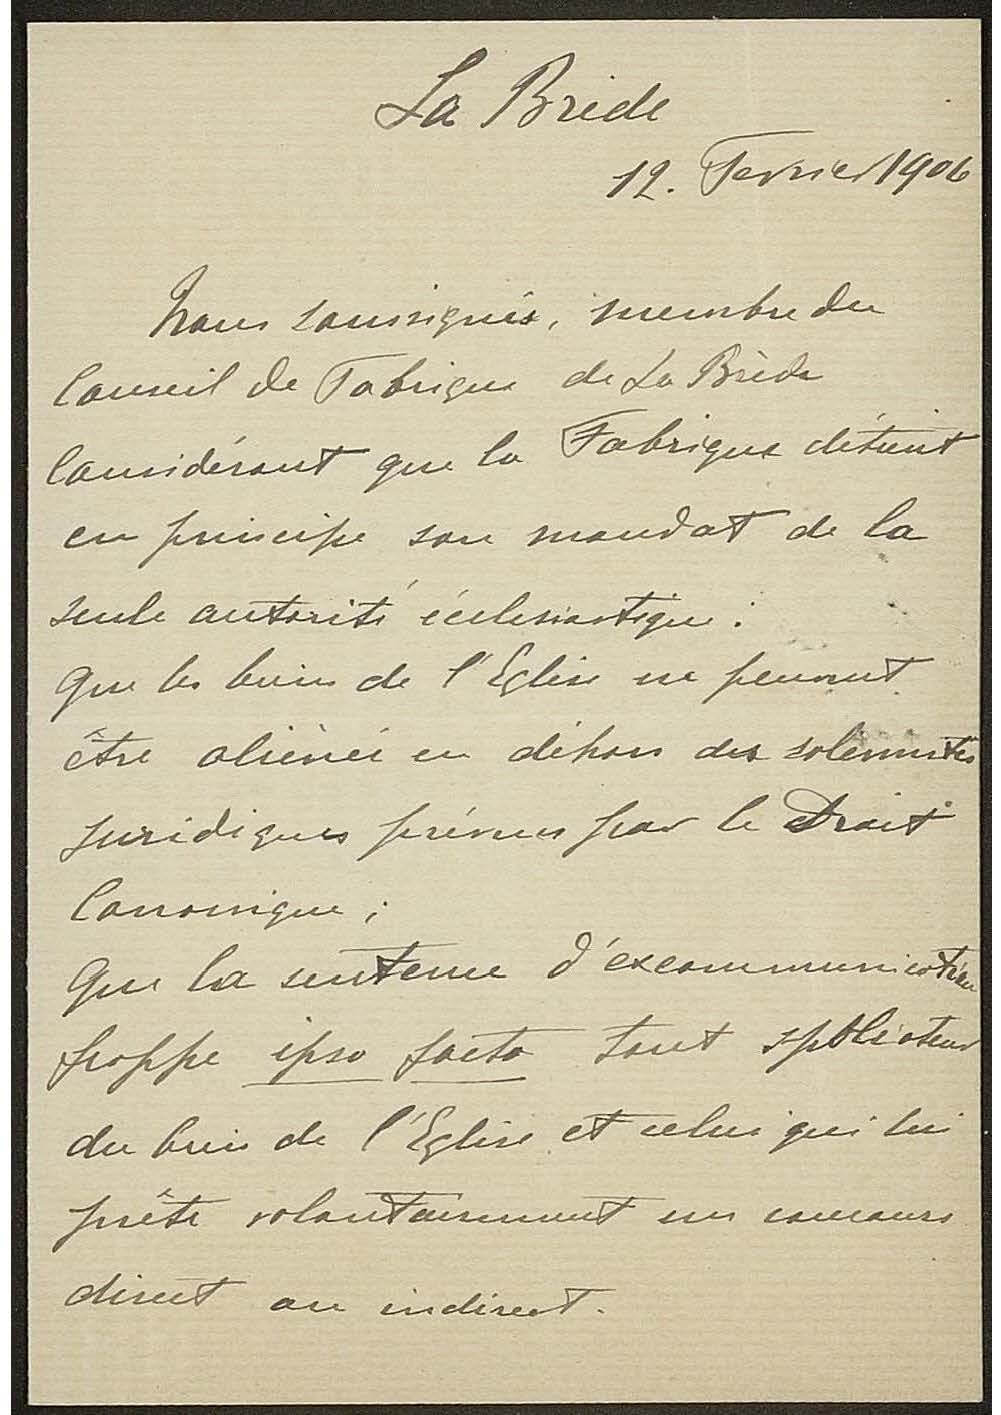 La Brède
12. Fevrier 1906
Nous soussignés, membre du
Conseil de Fabrique de La Brède
Considérant que la Fabrique détient
en principe son mandat de la
seule autorité écclesiastique :
Que les biens de l'Eglise ne peuvent
être aliénés en déhors des solennités
juridiques prévues par le Droit
Canonique ;
Que la sentence d'excommunication
frappe ipso facto tout spoliateur
du bien de l'Eglise et celui qui lui
prête volontairement un concours
direct ou indirect.